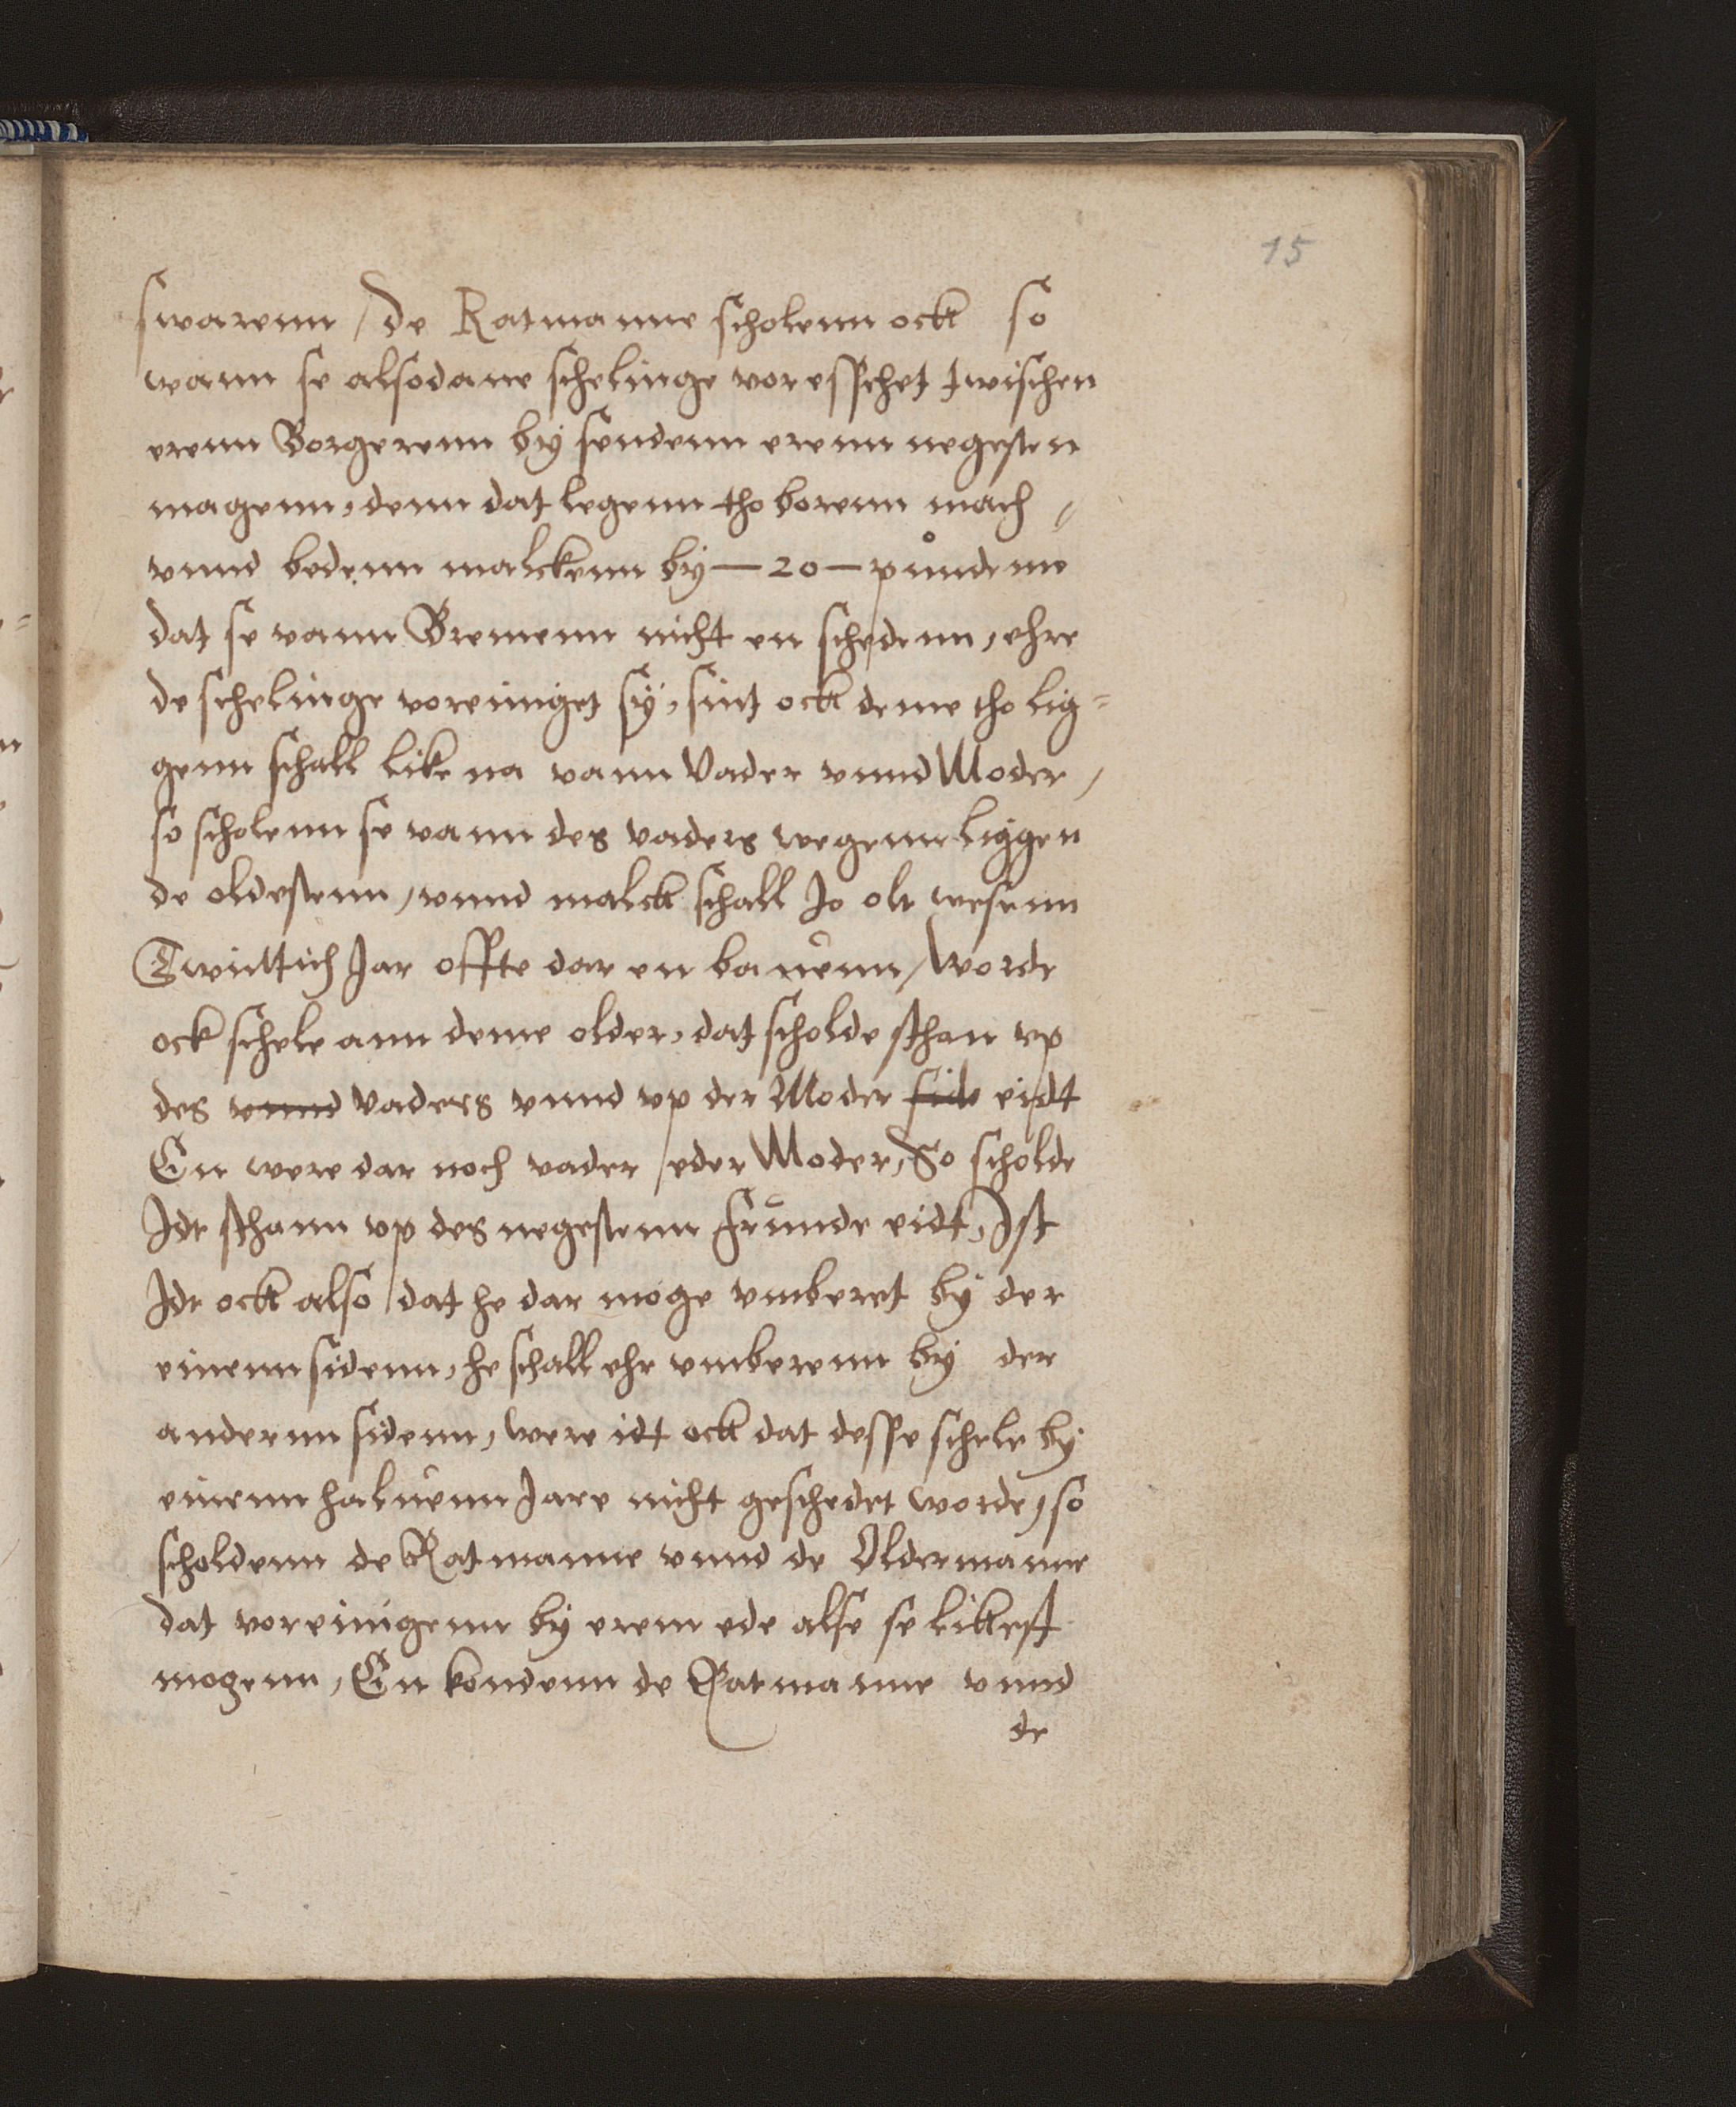 15
swarenn / de Ratmanne scholenn ock so
wann se alsodane schelinge voresschet twischen
erenn Borgerenn by sendenn erenn negesten
magenn, denn dat legenn tho borenn mach,
vnnd bedenn malckenn by — 20 — pundenn
dat se vann Bremenn nicht en schedenn, ehre
de schelinge voreiniget sy, sint ock deme tho lig=
genn schall like na vann Vader vnnd Moder,
so scholenn se vann des vaders wegenn liggen
de oldestenn, vnnd malck schall Jo olt wesenn
Twintich Jar offte dar en bauenn, Worde
ock schele ann deme older, dat scholde sthan vp
des vnnd Vaders vnnd vp der Moder side eidt
En were dar noch vader eder Moder, So scholde
Idt sthann vp des negestenn frunde eidt, Ist
Idt ock also dat he dar moge vmberet by der
einenn sidenn, he schall ehr vmberenn by der
anderenn sidenn, Were idt ock dat desse schele by
einenn haluenn Jare nicht geschedet worde, so
scholdenn de Ratmanne vnnd de Oldermanne
dat voreinigenn by erem ede alse se likkest
mogenn, En kondenn de Ratmanne vnnd
de